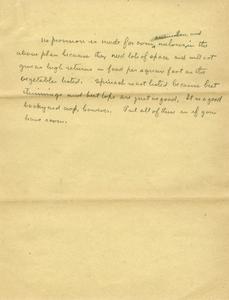 cucumber and
no provision is made for corn, melons in the
above plan because they need lots of space and will not
give as high returns in food per square foot as the
vegetables listed. Spinach is not listed because beet
thinnings and beet tops are just as good. It is a good
backyard crop, however. Put all of these in if you
have room.